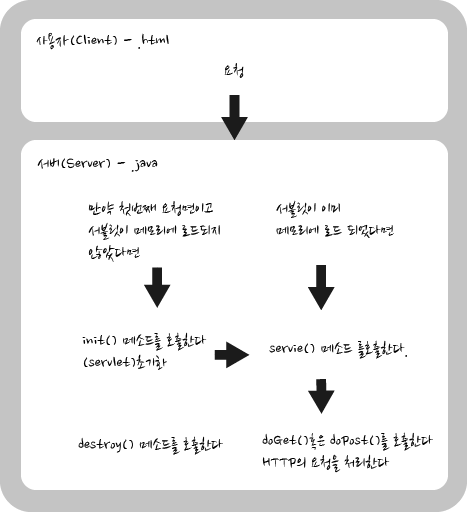 사용자(Client) - .html
요청
서버(Server) - .java
만약 첫번째 요청면이고
서블릿이 메모리에 로드되지
않았다면
서블릿이 이미
메모리에 로드 되었다면
init() 메소드를 호출한다
(servlet)초기화
servie() 메소드 를호출한다.
destroy() 메소드를 호출한다
doGet()혹은 doPost()를 호출한다
HTTP의 요청을 처리한다